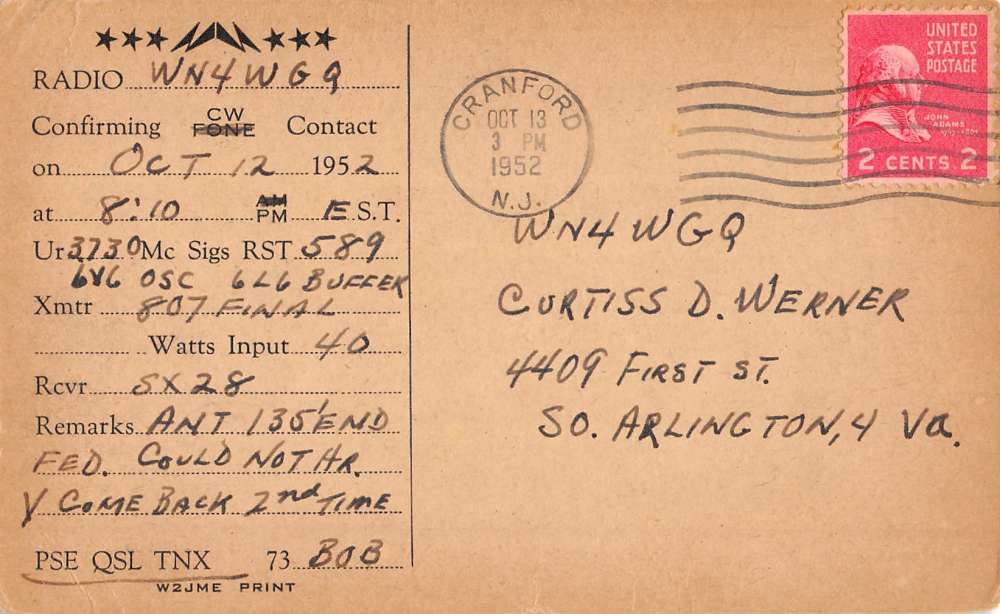 RADIO WN4WGQ
Confirming CW FONE Contact
on OCT 12 1952
at 8:10 AM PM E.S.T.
Ur 3730 Mc Sigs RST 589
6V6 OSC 6L6 BUFFER
Xmtr 807 FINAL
Watts Input 40
Rcvr SX28
Remarks ANT 135' END
FED. COULD NOT HR.
Y COME BACK 2nd TIME
PSE QSL TNX 73 BOB
W2JME PRINT
CRANFORD
OCT 13
3 PM
1952
N.J.
UNITED
STATES
POSTAGE
JOHN
ADAMS
2 CENTS 2
WN4WGQ
CURTISS D. WERNER
4409 FIRST ST.
SO. ARLINGTON, 4 Va.